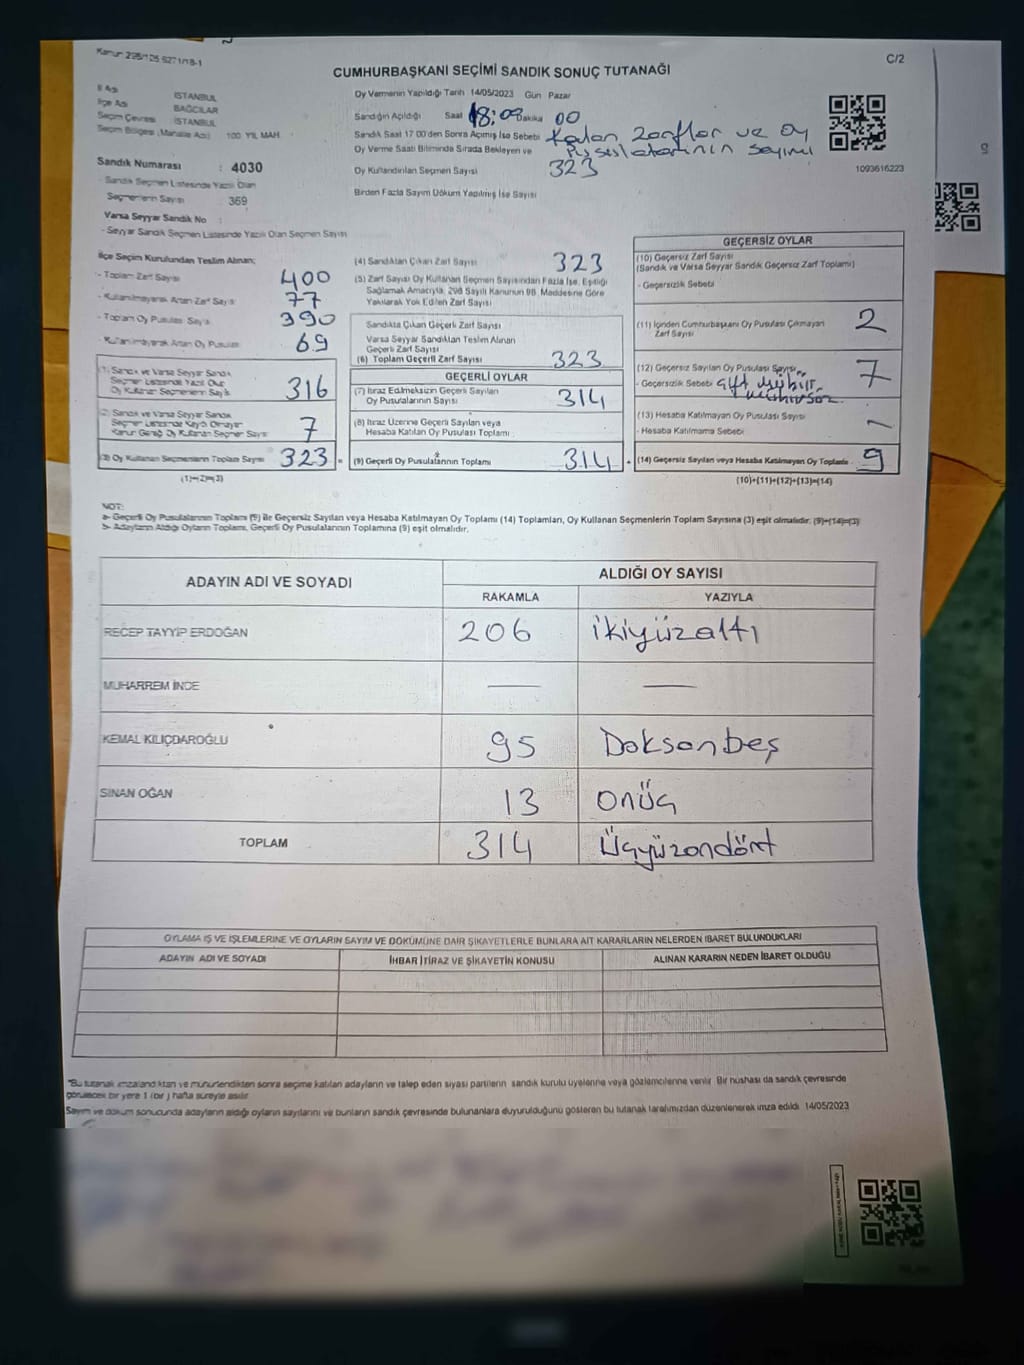 C/2
CUMHURBAŞKANI SEÇİMİ SANDIK SONUÇ TUTANAĞI
İl Adı İSTANBUL
İlçe Adı BAĞCILAR
Seçim Çevresi İSTANBUL
Seçim Bölgesi (Mahalle Adı) 100. YIL MAH
Sandık Numarası : 4030
- Sandık Seçmen Listesinde Yazılı Olan
Seçmenlerin Sayısı 369
Varsa Seyyar Sandık No :
- Seyyar Sandık Seçmen Listesinde Yazılı Olan Seçmen Sayısı
Oy Vermenin Yapıldığı Tarih 14/05/2023 Gün Pazar
Sandığın Açıldığı Saat 18:09 Dakika 00
Sandık Saat 17.00'den Sonra Açılmış İse Sebebi Kalan zarflar ve oy
Oy Verme Saati Bitiminde Sırada Bekleyen ve sayımı
Oy Kullandırılan Seçmen Sayısı 323
Birden Fazla Sayım Döküm Yapılmış İse Sayısı
1093616223
İlçe Seçim Kurulundan Teslim Alınan;
- Toplam Zarf Sayısı 400
- Kullanılmayarak Artan Zarf Sayısı 77
- Toplam Oy Pusulası Sayısı 390
- Kullanılmayarak Artan Oy Pusulası 69
(1) Sandık ve Varsa Seyyar Sandık
Seçmen Listesinde Yazılı Olup
Oy Kullanan Seçmenlerin Sayısı 316
(2) Sandık ve Varsa Seyyar Sandık
Seçmen Listesinde Kayıtlı Olmayıp
Kanun Gereği Oy Kullanan Seçmen Sayısı 7
(3) Oy Kullanan Seçmenlerin Toplam Sayısı 323 =
(1)+(2)=(3)
(4) Sandıktan Çıkan Zarf Sayısı 323
(5) Zarf Sayısı Oy Kullanan Seçmen Sayısından Fazla İse, Eşitliği
Sağlamak Amacıyla, 298 Sayılı Kanunun 98. Maddesine Göre
Yakılarak Yok Edilen Zarf Sayısı
Sandıkta Çıkan Geçerli Zarf Sayısı
Varsa Seyyar Sandıktan Teslim Alınan
Geçerli Zarf Sayısı
(6) Toplam Geçerli Zarf Sayısı 323
GEÇERLİ OYLAR
(7) İtiraz Edilmeksizin Geçerli Sayılan
Oy Pusulalarının Sayısı 314
(8) İtiraz Üzerine Geçerli Sayılan veya
Hesaba Katılan Oy Pusulası Toplamı
(9) Geçerli Oy Pusulalarının Toplamı 314 +
GEÇERSİZ OYLAR
(10) Geçersiz Zarf Sayısı
(Sandık ve Varsa Seyyar Sandık Geçersiz Zarf Toplamı)
- Geçersizlik Sebebi
(11) İçinden Cumhurbaşkanı Oy Pusulası Çıkmayan
Zarf Sayısı 2
(12) Geçersiz Sayılan Oy Pusulası Sayısı 7
- Geçersizlik Sebebi çift mühür
mühürsüz
(13) Hesaba Katılmayan Oy Pusulası Sayısı
- Hesaba Katılmama Sebebi
(14) Geçersiz Sayılan veya Hesaba Katılmayan Oy Toplamı 9
(10)+(11)+(12)+(13)=(14)
NOT:
a- Geçerli Oy Pusulalarının Toplamı (9) ile Geçersiz Sayılan veya Hesaba Katılmayan Oy Toplamı (14) Toplamları, Oy Kullanan Seçmenlerin Toplam Sayısına (3) eşit olmalıdır. (9)+(14)=(3)
b- Adayların Aldığı Oyların Toplamı, Geçerli Oy Pusulalarının Toplamına (9) eşit olmalıdır.
ADAYIN ADI VE SOYADI ALDIĞI OY SAYISI
RAKAMLA YAZIYLA
RECEP TAYYİP ERDOĞAN 206 ikiyüzaltı
MUHARREM İNCE — —
KEMAL KILIÇDAROĞLU 95 Doksanbeş
SİNAN OĞAN 13 onüç
TOPLAM 314 Üçyüzondört
OYLAMA İŞ VE İŞLEMLERİNE VE OYLARIN SAYIM VE DÖKÜMÜNE DAİR ŞİKAYETLERLE BUNLARA AİT KARARLARIN NELERDEN İBARET BULUNDUKLARI
ADAYIN ADI VE SOYADI İHBAR İTİRAZ VE ŞİKAYETİN KONUSU ALINAN KARARIN NEDEN İBARET OLDUĞU
"Bu tutanak imzalandıktan ve mühürlendikten sonra seçime katılan adayların ve talep eden siyasi partilerin sandık kurulu üyelerine veya gözlemcilerine verilir. Bir nüshası da sandık çevresinde
görülecek bir yere 1 (bir) hafta süreyle asılır.
Sayım ve döküm sonucunda adayların aldığı oyların sayılarını ve bunların sandık çevresinde bulunanlara duyurulduğunu gösteren bu tutanak tarafımızdan düzenlenerek imza edildi. 14/05/2023